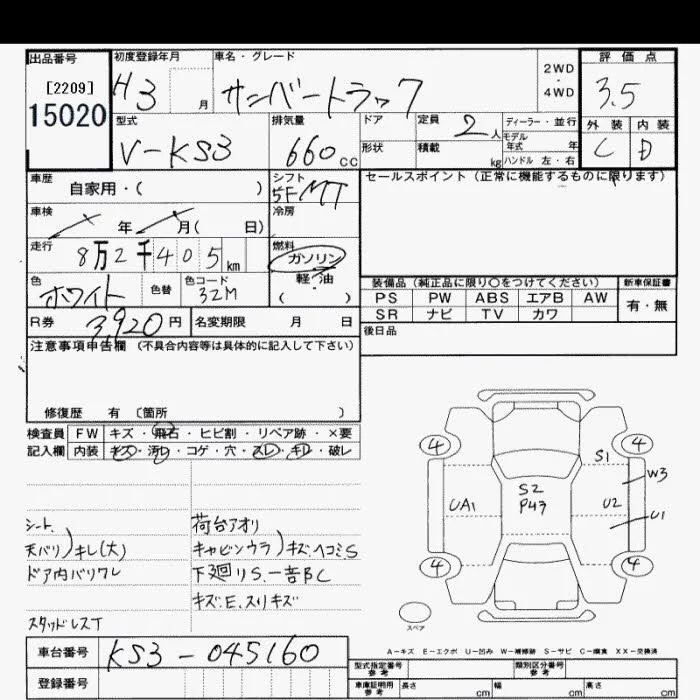 出品番号 初度登録年月 車名・グレード 2WD・4WD 評価点
[2209] H3 月 サンバートラック 3.5
15020 型式 排気量 ドア 定員 ディーラー・並行 外装 内装
V-KS3 660cc 形状 2人 モデル年式 年 C D
積載 kg ハンドル 左・右
車歴 自家用・( ) シフト 5F MT セールスポイント (正常に機能するものに限ります)
車検 年 月( 日) 冷房
走行 8万2千405km 燃料 ガソリン
軽・油
( )
色 ホワイト 色替 色コード 32M
装備品 (純正品に限り〇をつけてください) 新車保証書
PS PW ABS エアB AW 有・無
SR ナビ TV カワ
R券 3,920円 名変期限 月 日 後日品
注意事項申告欄 (不具合内容等は具体的に記入して下さい)
修復歴 有 〔箇所 〕
検査員 FW キズ・飛石・ヒビ割・リペア跡・×要
記入欄 内装 キズ・汚れ・コゲ・穴・スレ・キレ・破レ
シート、
天バリ)キレ(大)
ドア内バリワレ
スタッドレスT
荷台アオリ
キャビンウラ)キズ、ヘコミS
下廻りS.一部C
キズ.E.スリキズ
4 4
S1
W3
UA1 S2 U2
P43 U1
4 4
スペア
A-キズ E-エクボ U-凹み W-補修跡 S-サビ C-腐食 XX-交換済
車台番号 KS3-045160
登録番号
型式指定番号 参考 類別区分番号 参考
車庫証明用 参考 長さ cm 幅 cm 高さ cm